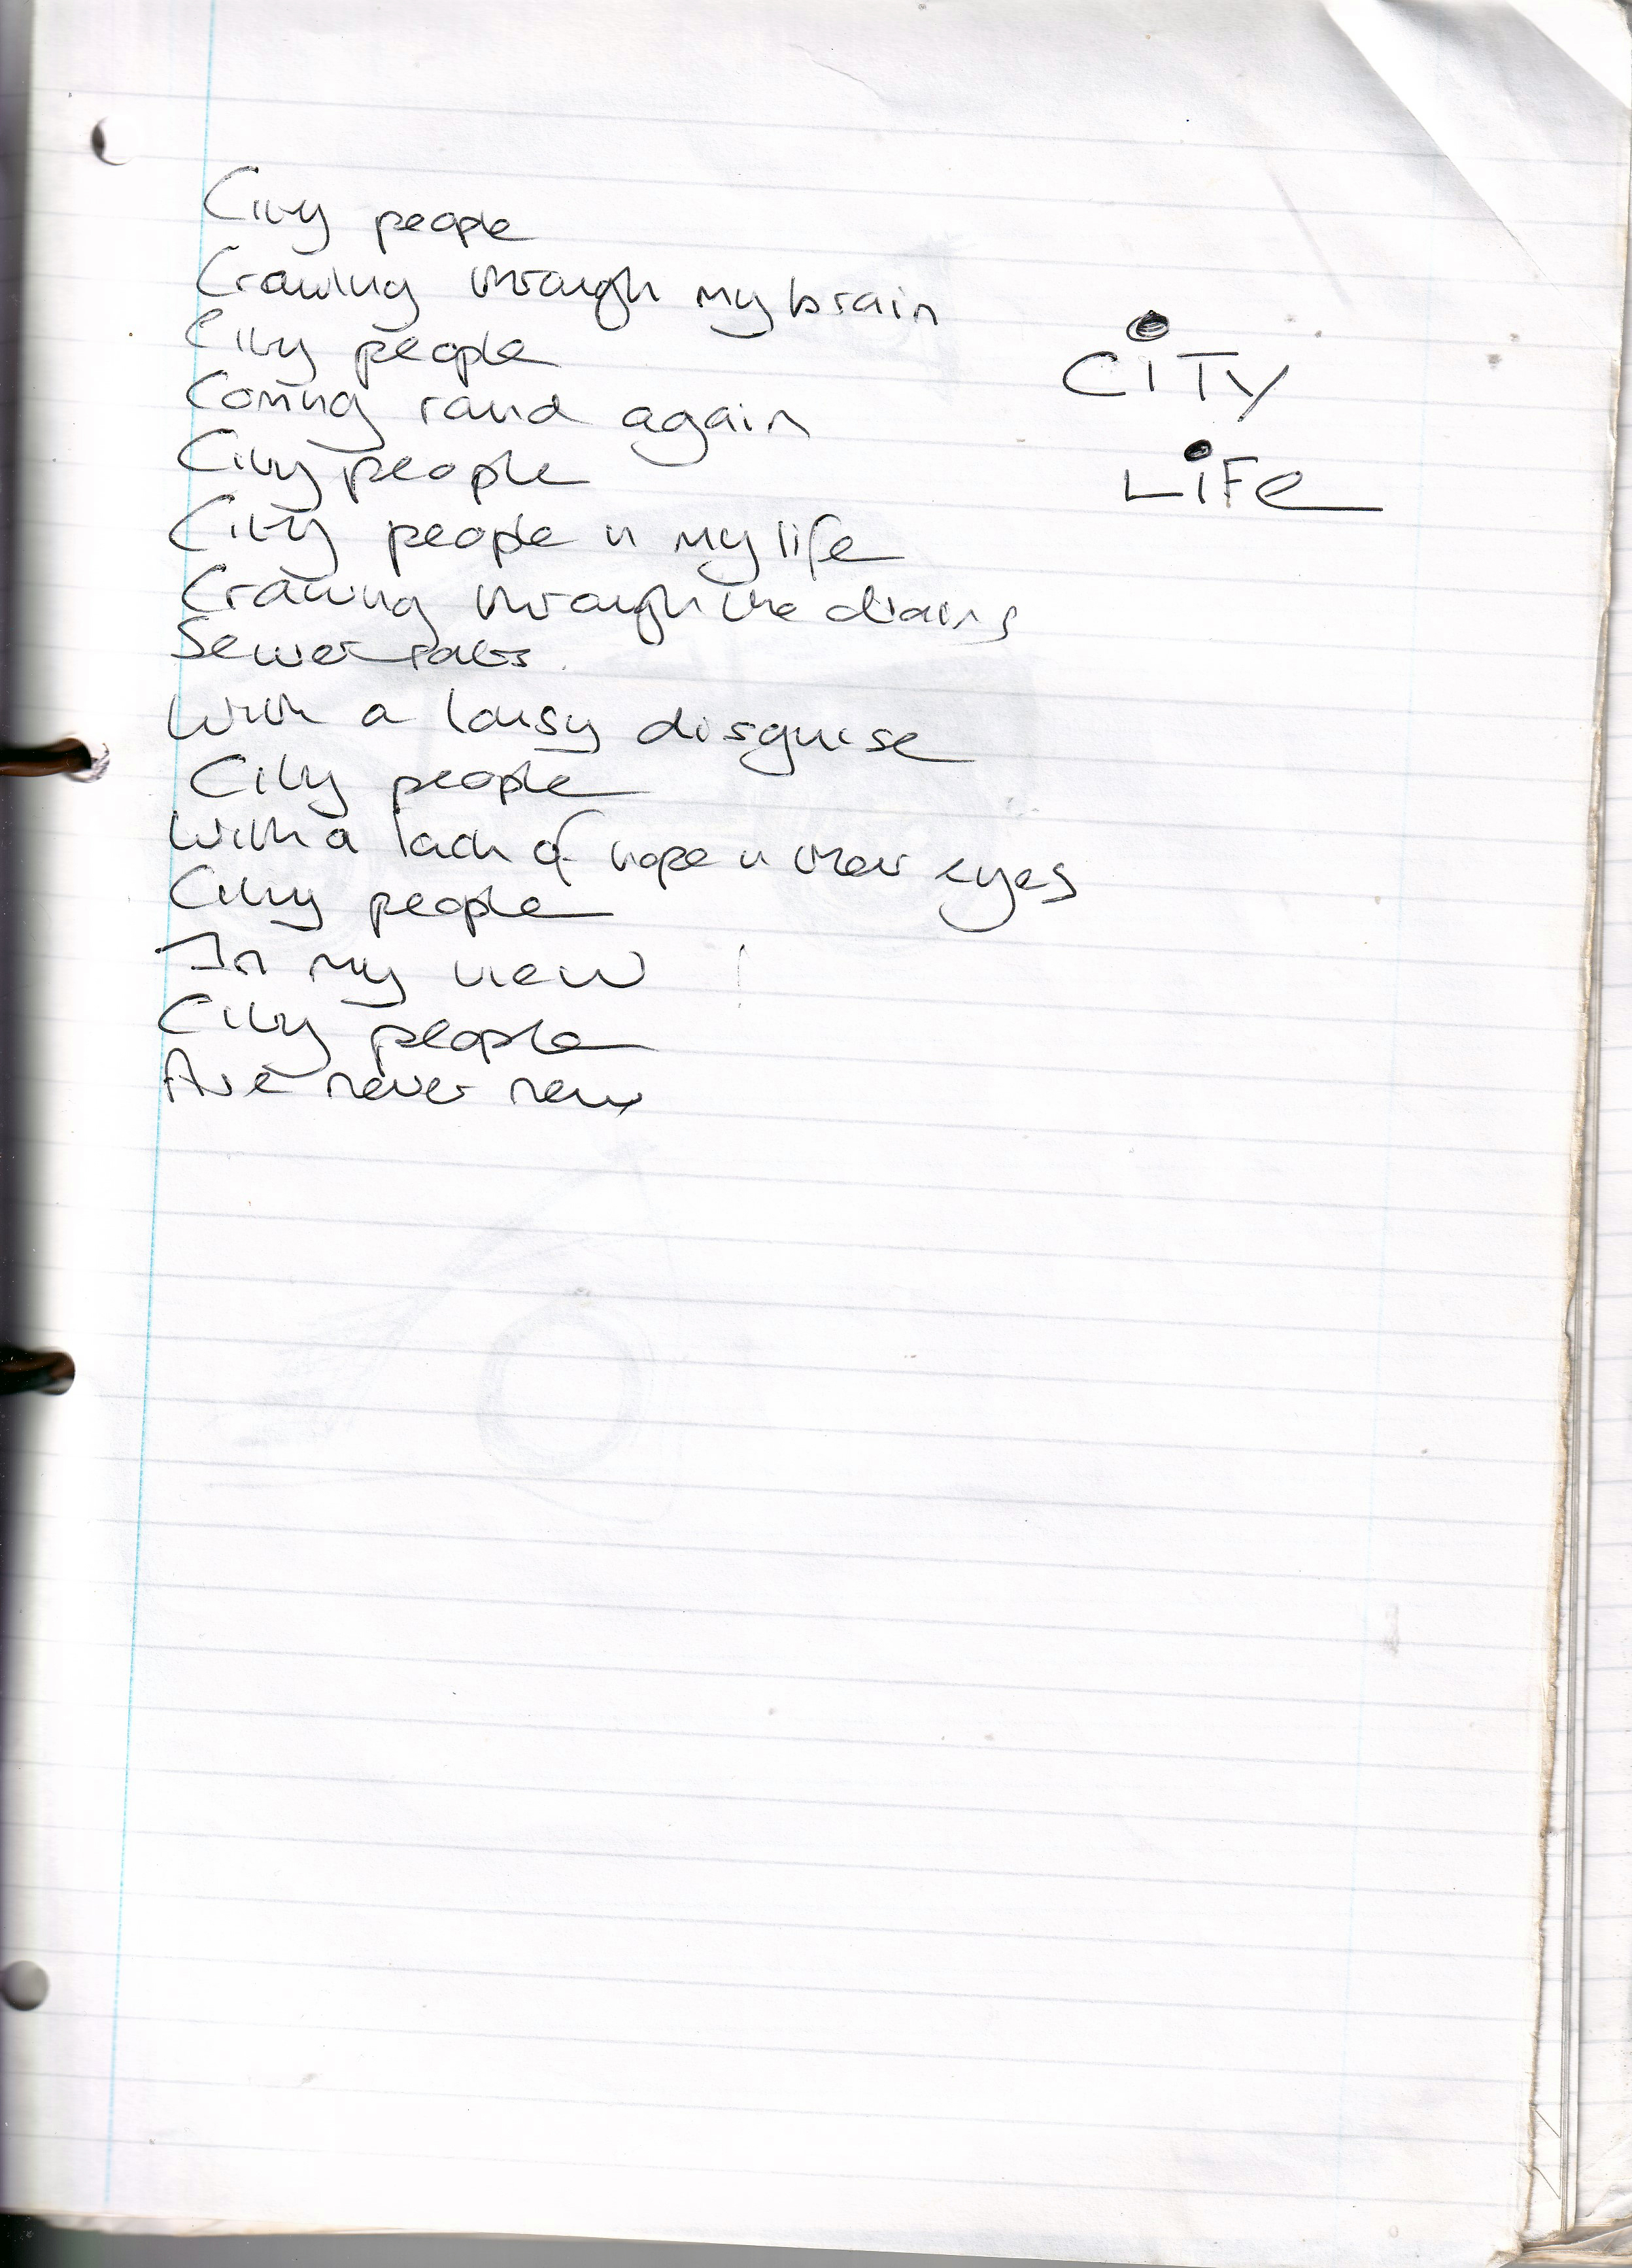 City people
Crawling through my brain
City people
Coming round again
City people
City people in my life
Crawling through the drains
Sewer rats
With a lousy disguise
City people
With a lack of hope in their eyes
City people
In my view
City people
Are never new
CiTY
LiFe